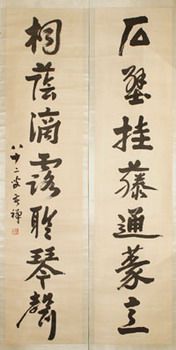 石壁挂藤通篆意
桐蔭滴露聆琴聲
八十二叟